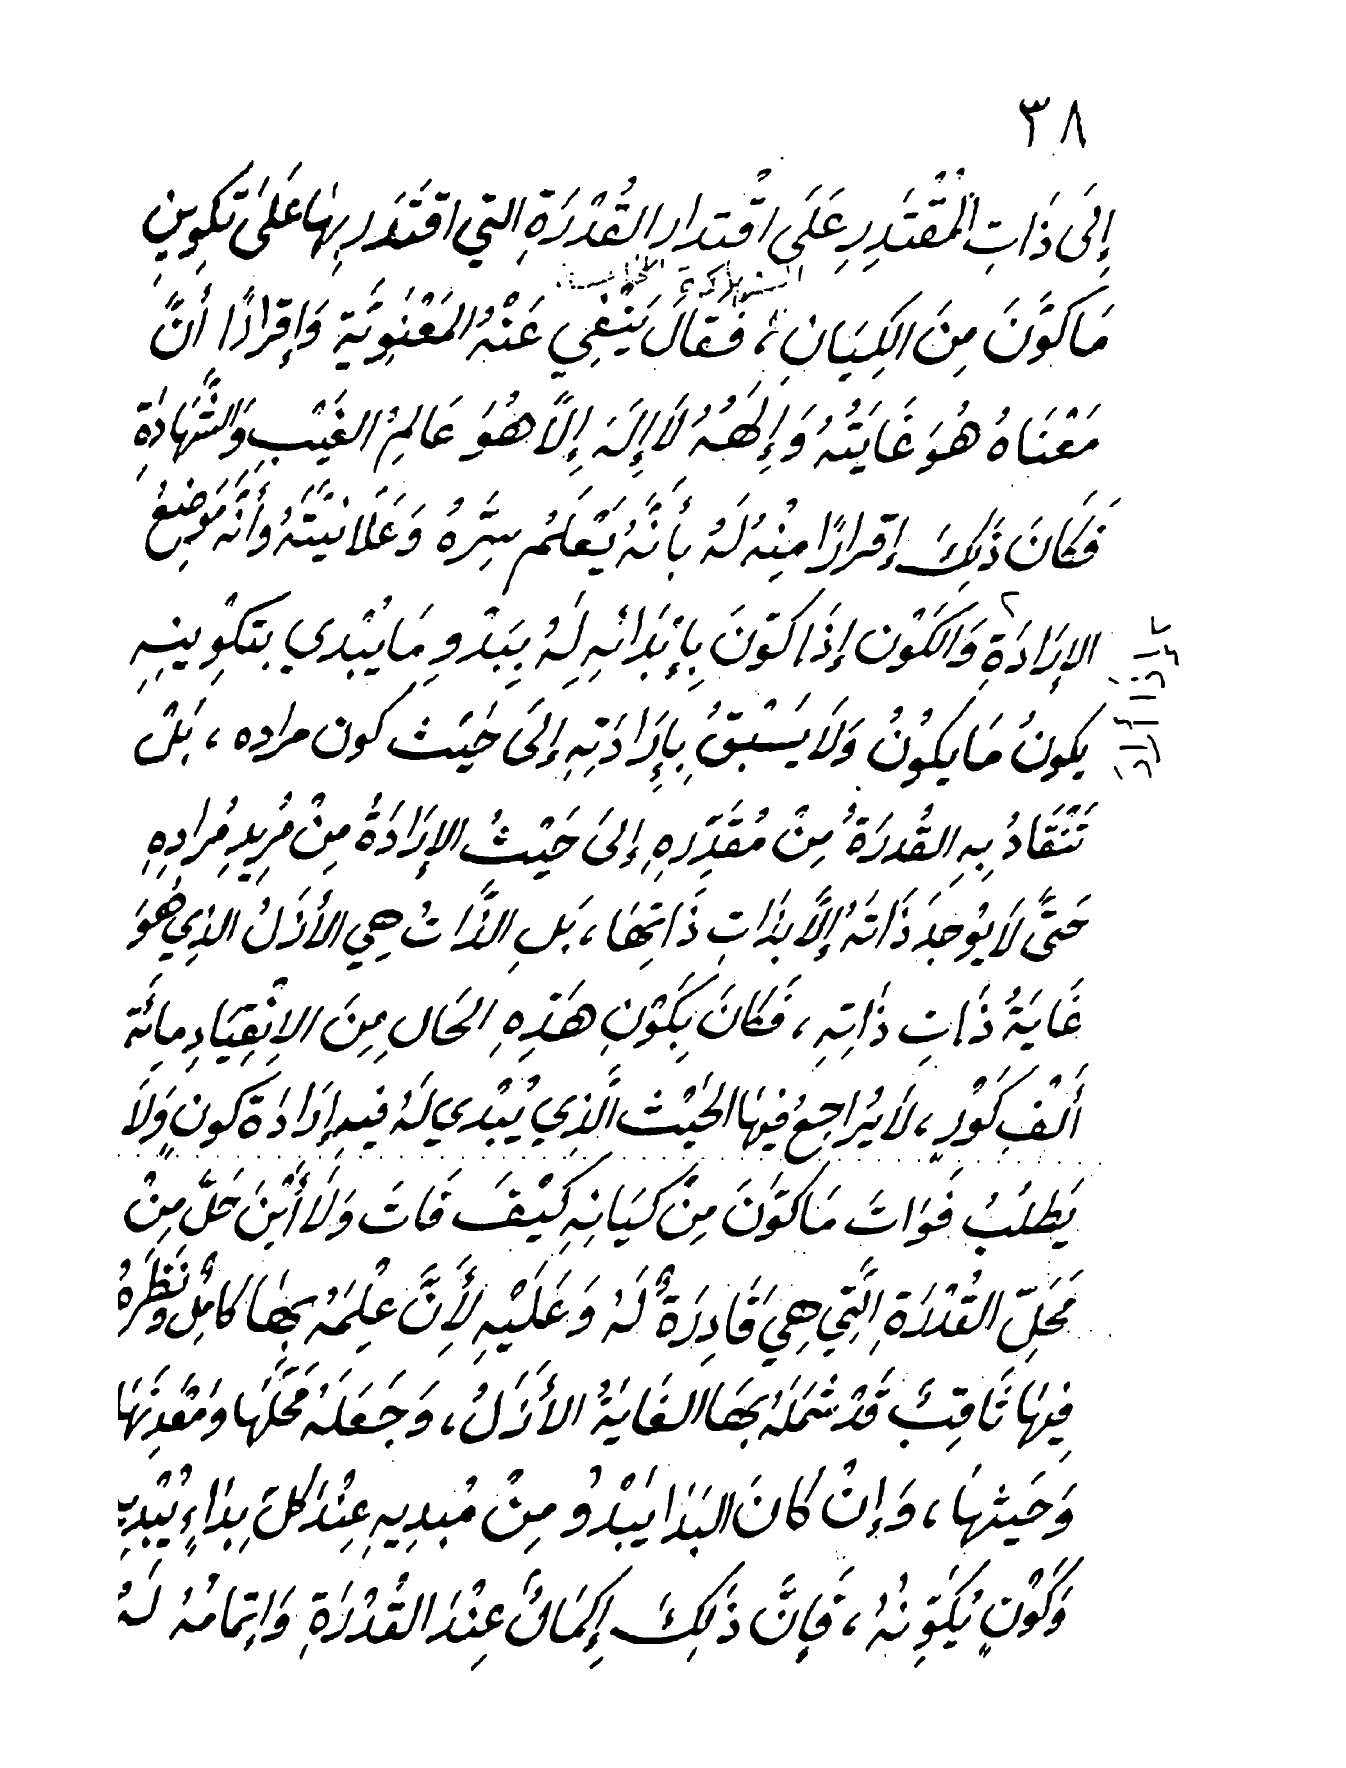 ٣٨
إِلَى ذَاتِ المُقْتَدِرِ عَلَى اقْتِدارِ القُدْرَةِ التي اقتَدَرَ بِهَا عَلَى تَكوِينِ
مَا كَوَّنَ مِنَ الكِيَانِ ، فَقَالَ يَنْفِي عَنْهُ المَعْنَوِيَّةِ وَإِقرارًا أَنَّ
مَعْنَاهُ هُوَ غَايَتُهُ وَإِلَهُهُ لَا إِلَهَ إِلَّا هُوَ عَالِمُ الغَيْبِ وَالشَّهَادَةِ
فَكَانَ ذَلِكَ إِقرارًا مِنْهُ لَهُ بأَنَّهُ يَعْلَمُ سِرَّهُ وَعَلَانيَّتَهُ وأَنَّه مَوضِعُ
الإِرَادَةِ وَالكَوْنِ إِذَا كَوَّنَ بِإِبْدَائِهِ لَهُ بِبَدْوِ مَا يُبْدِي بتكوِينِهِ
يكونُ مَا يكُونُ وَلَا يَسْبِقُ بِإِرَادَتِهِ إِلَى حَيْثُ كون مراده ، بَلْ
تَنْقَادُ بِهِ القُدرَةُ مِنْ مُقَدِّرِهِ إِلَى حَيْثُ الإِرَادَةُ مِنْ مُرِيدِ مُرادِهِ
حَتَّى لَا يُوجدَ ذَاتَهُ إِلَّا بذَاتِ ذَاتِهَا ، بَلِ الذَّاتُ هِيَ الأَزَلُ الذِي هُوَ
غَايَةُ ذَاتِ ذَاتِهِ ، فَكَانَ بِكَوْنِ هَذِهِ الحَالِ مِنَ الاِنْقِيَادِ مِائَةَ
أَلْفِ كَوْرٍ ، لَا يُرَاجِعُ فِيهَا الحَيْثَ الَّذِي يُبْدي لَهُ فيهِ إِرَادَةَ كونٍ وَلَا
يَطلُبُ فَوَاتَ مَا كَوَّنَ مِنْ كيَانِهِ كَيْفَ فَاتَ وَلَا أَيْنَ حَلَّ مِنْ
مَحَلِّ القُدْرَةِ الَّتِي هِيَ قَادِرَةٌ لَهُ وَعَلَيْهِ لأَنَّ عِلْمَهُ بِهَا كامِلٌ ونَظَرَهُ
فِيهَا ثَاقِبٌ قَدْ شَمَلَهُ بِهَا الغَايَةُ الأَزَلُ ، وَجَعَلَهُ مَحَلَّهَا وَمَعْدِنَهَا
وَحَيثهَا ، وَإِنْ كَانَ البَدَا يَبْدُو مِنْ مُبديهِ عِنْدَ كلِّ بِدَاءٍ يُبْدِيهِ
وَكَوْنٍ يُكَوِّنهُ ، فَإِنَّ ذَلِكَ إِكمَالٌ عِنْدَ القُدْرَةِ وَإِتمَامهُ لَهُ